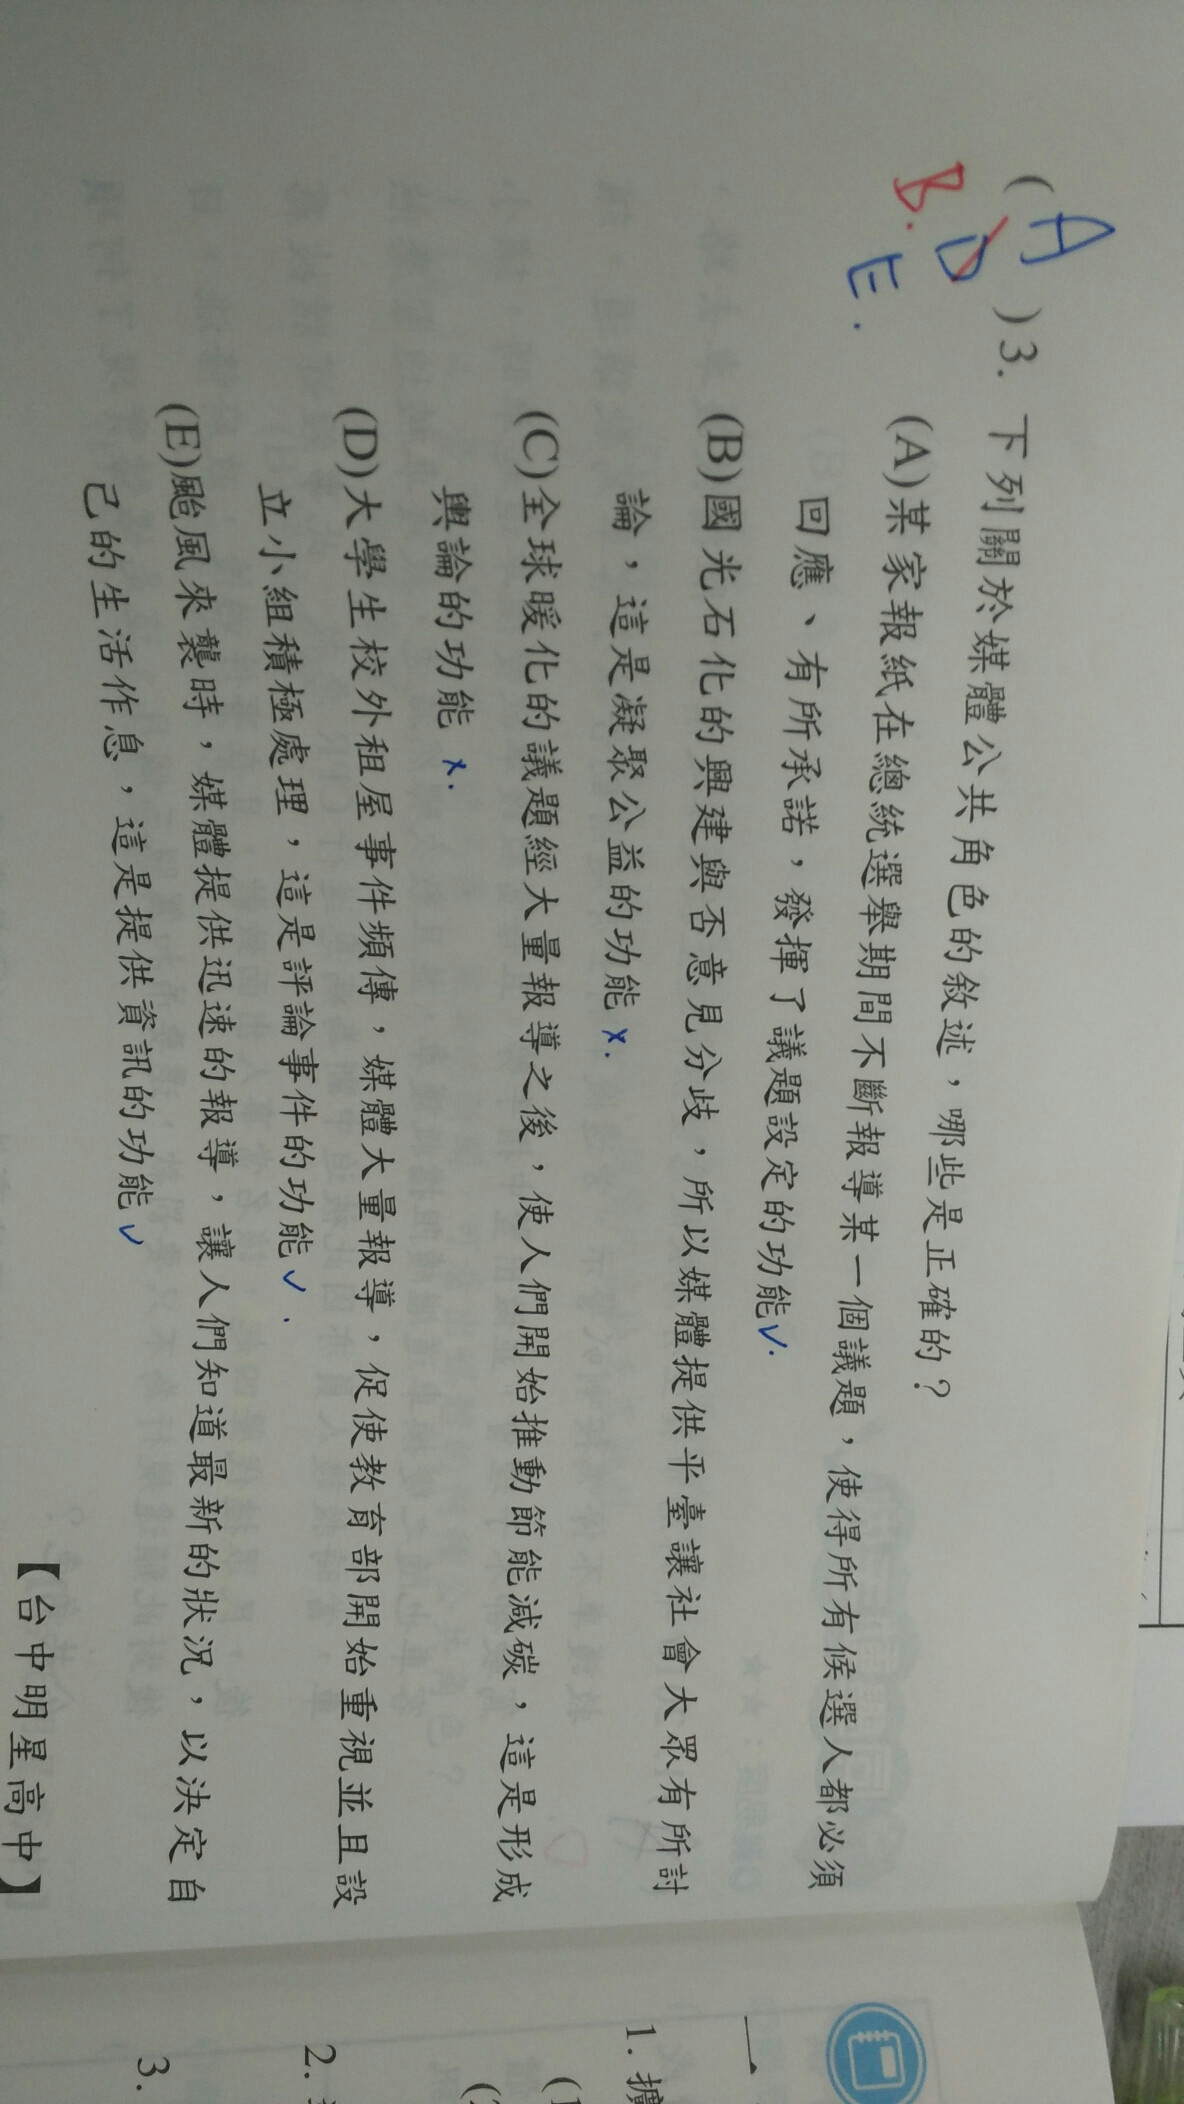 (A)3. 下列關於媒體公共角色的敘述，哪些是正確的？
B. D
E.
(A)某家報紙在總統選舉期間不斷報導某一個議題，使得所有候選人都必須
回應、有所承諾，發揮了議題設定的功能✓.
(B)國光石化的興建與否意見分歧，所以媒體提供平臺讓社會大眾有所討
論，這是凝聚公益的功能 x.
(C)全球暖化的議題經大量報導之後，使人們開始推動節能減碳，這是形成
輿論的功能 x.
(D)大學生校外租屋事件頻傳，媒體大量報導，促使教育部開始重視並且設
立小組積極處理，這是評論事件的功能✓.
(E)颱風來襲時，媒體提供迅速的報導，讓人們知道最新的狀況，以決定自
己的生活作息，這是提供資訊的功能✓
【台中明星高中】
一
1. 擴
(1
(2
2.
3.